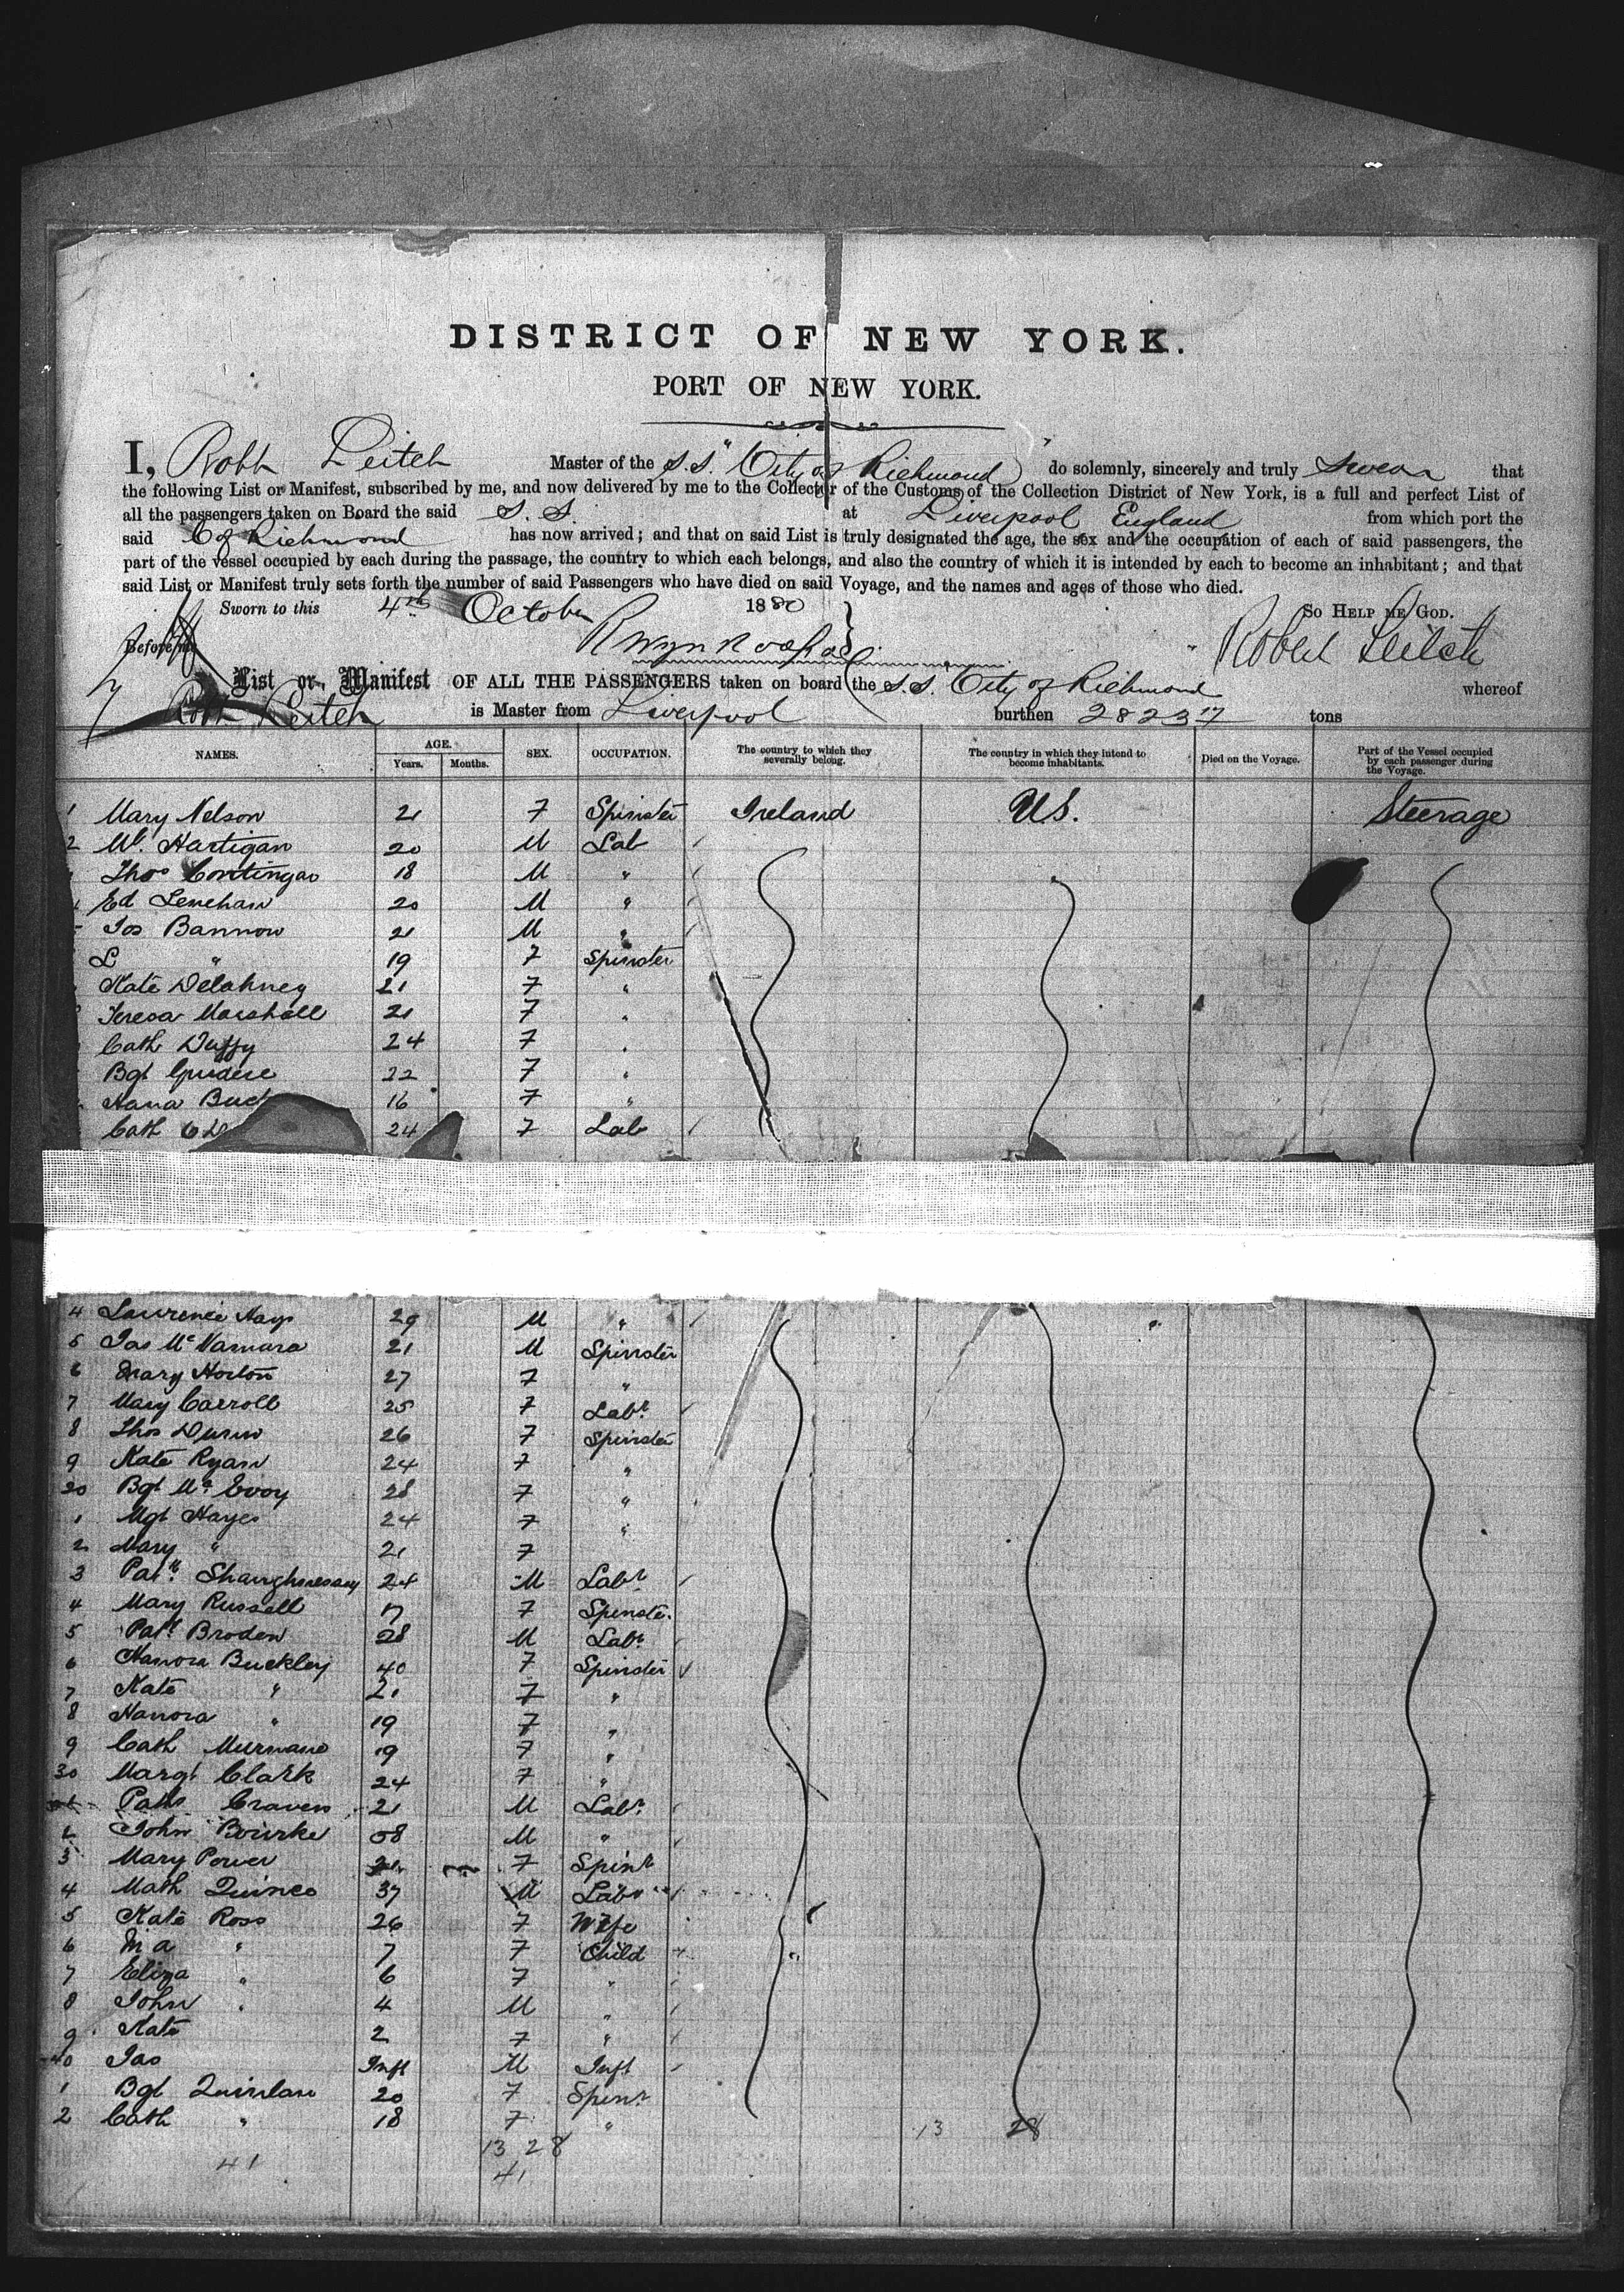 DISTRICT OF NEW YORK.
PORT OF NEW YORK.
I, Robt Leitch Master of the S.S. "City of Richmond" do solemnly, sincerely and truly Swear that
the following List or Manifest, subscribed by me, and now delivered by me to the Collector of the Customs of the Collection District of New York, is a full and perfect List of
all the passengers taken on Board the said S. S. at Liverpool England from which port the
said C of Richmond has now arrived; and that on said List is truly designated the age, the sex and the occupation of each of said passengers, the
part of the vessel occupied by each during the passage, the country to which each belongs, and also the country of which it is intended by each to become an inhabitant; and that
said List or Manifest truly sets forth the number of said Passengers who have died on said Voyage, and the names and ages of those who died.
Sworn to this 4th October 1880 So Help me God.
Before me Robert Leitch
List or Manifest OF ALL THE PASSENGERS taken on board the S.S. City of Richmond whereof
Robt Leitch is Master from Liverpool burthen 2823 17 tons
NAMES. AGE. Years. Months. SEX. OCCUPATION. The country to which they severally belong. The country in which they intend to become inhabitants. Died on the Voyage. Part of the Vessel occupied by each passenger during the Voyage.
1 Mary Nelson 21 F Spinster Ireland US. Steerage
2 Ml. Hartigan 20 M Lab
Thos 18 M "
Ed Lenehan 20 M "
Jos Bannon 21 M "
L " 19 F Spinster
Kate Delahney 21 F "
Teresa Marshall 21 F "
Cath Duffy 24 F "
Bgt 22 F "
Hana 16 F "
Cath 24 F Lab
4 Lawrence Hays 29 M "
5 Jas McNamara 21 M Spinster
6 Mary Horton 27 F "
7 Mary Carroll 25 F Labr
8 Thos 26 F Spinster
9 Kate Ryan 24 F "
20 Bgt McEvoy 28 F "
1 Mgt Hayes 24 F "
2 Mary " 21 F
3 Patk Shaughnessy 24 M Labr
4 Mary Russell 17 F Spinster
5 Patk Broden 28 M Labr
6 Hanora Buckley 40 F Spinster
7 Kate " 21 F "
8 Hanora " 19 F "
9 Cath Murnane 19 F "
30 Margt Clark 24 F "
1 Patk Craven 21 M Labr
2 John Bourke 58 M "
3 Mary Power 21 F Spinr
4 Math 37 M Labr
5 Kate Ross 26 F Wife
6 Ma " 7 F Child
7 Eliza " 6 F "
8 John " 4 M "
9 Kate 2 F "
40 Jas Inft M Inft
1 Bgt Quinlan 20 F Spinr
2 Cath " 18 F "
13 28 13 28
41 41